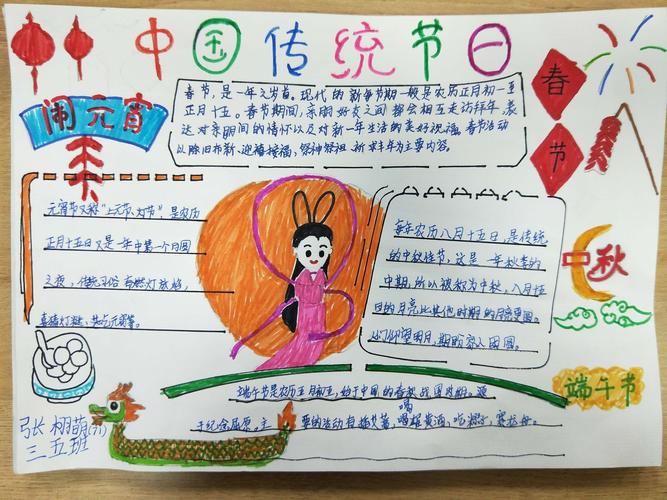 中国传统节日
春节,是一年之岁首。现代的新年节期一般是农历正月初一至
正月十五。春节期间,亲朋好友之间都会相互走访拜年,表
达对亲朋间的情怀以及对新一年生活的美好祝福。春节活动
以除旧布新、迎禧接福、祭神祭祖、祈求丰年为主要内容。
春
节
闹元宵
元宵节又称“上元节、灯节”,是农历
正月十五日又是一年中第一个月圆
之夜,传统习俗有燃灯放焰、
猜灯谜、共吃元宵等。
每年农历八月十五日,是传统
的中秋佳节,这是一年秋季的
中期,所以被称为中秋,八月十五
日的月亮比其他时期的月亮更圆。
人们仰望明月,期盼家人团圆。
中秋
端午节
端午节是农历五月初五,始于中国的春秋战国时期。源
于纪念屈原。主要的活动有插艾蒿,喝雄黄酒,吃粽子,赛龙舟。
张栩萌(71)
三五班